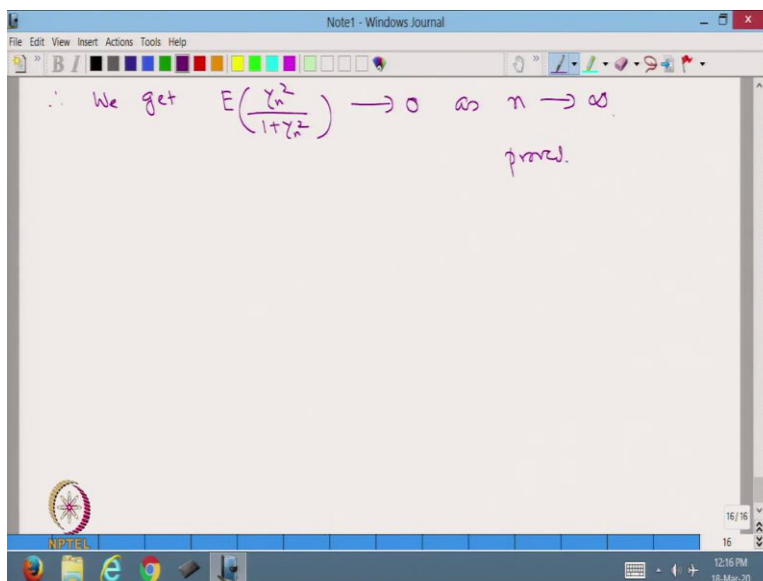 Note1 - Windows Journal
File Edit View Insert Actions Tools Help
B I
∴ We get E(Yn²/(1+Yn²)) → 0 as n → ∞
proved.
NPTEL
16/16
16
12:16 PM
18-Mar-20